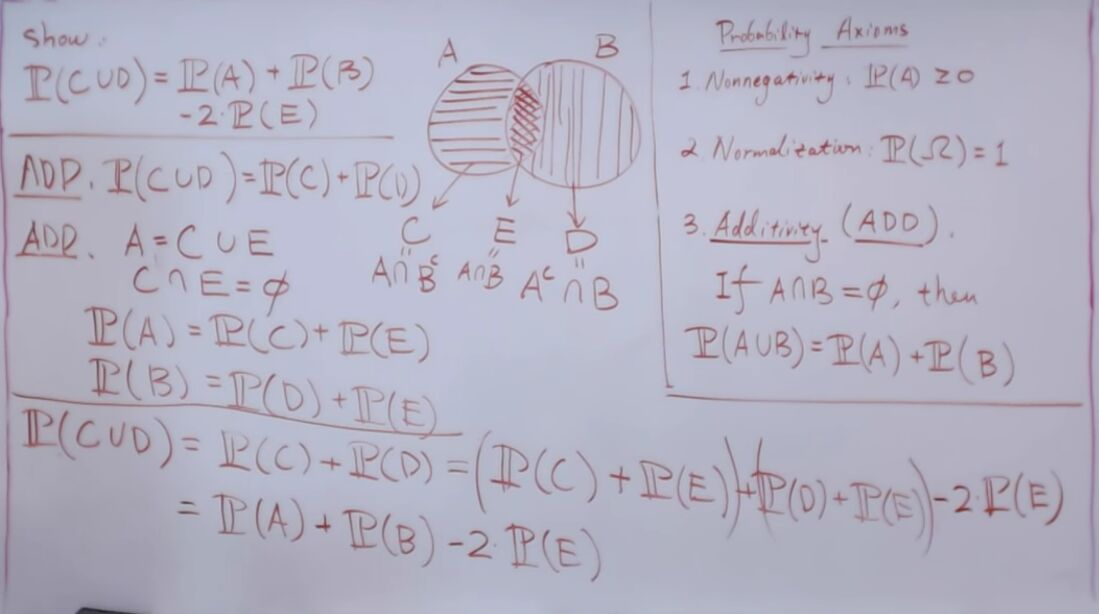 Show:
ℙ(C∪D) = ℙ(A) + ℙ(B)
-2·ℙ(E)
ADD. ℙ(C∪D) = ℙ(C) + ℙ(D)
ADD. A = C ∪ E
C ∩ E = ∅
ℙ(A) = ℙ(C) + ℙ(E)
ℙ(B) = ℙ(D) + ℙ(E)
A
B
C
E
D
=
=
=
A∩Bᶜ
A∩B
Aᶜ∩B
Probability Axioms
1. Nonnegativity: ℙ(A) ≥ 0
2. Normalization: ℙ(Ω) = 1
3. Additivity (ADD).
If A∩B = ∅, then
ℙ(A∪B) = ℙ(A) + ℙ(B)
ℙ(C∪D) = ℙ(C) + ℙ(D) = (ℙ(C) + ℙ(E)) + (ℙ(D) + ℙ(E)) - 2·ℙ(E)
= ℙ(A) + ℙ(B) - 2·ℙ(E)